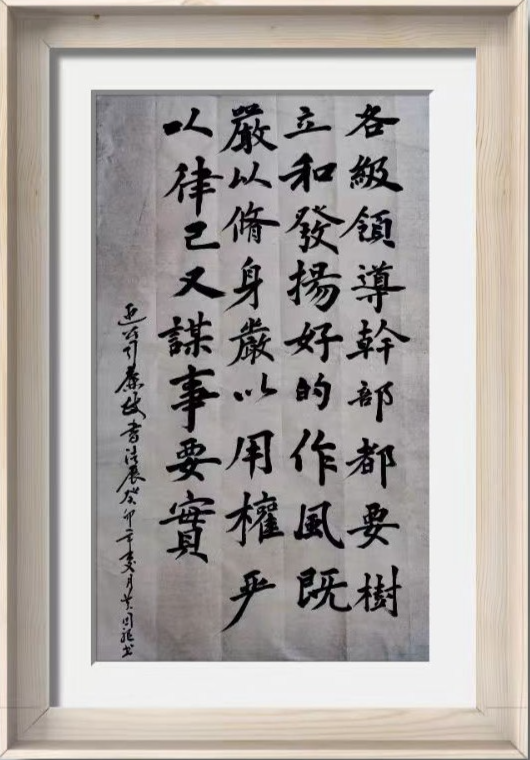 各級領導幹部都要樹
立和發揚好的作風既
嚴以脩身嚴以用權严
以律己又謀事要實
廉政書法展癸卯年夏月